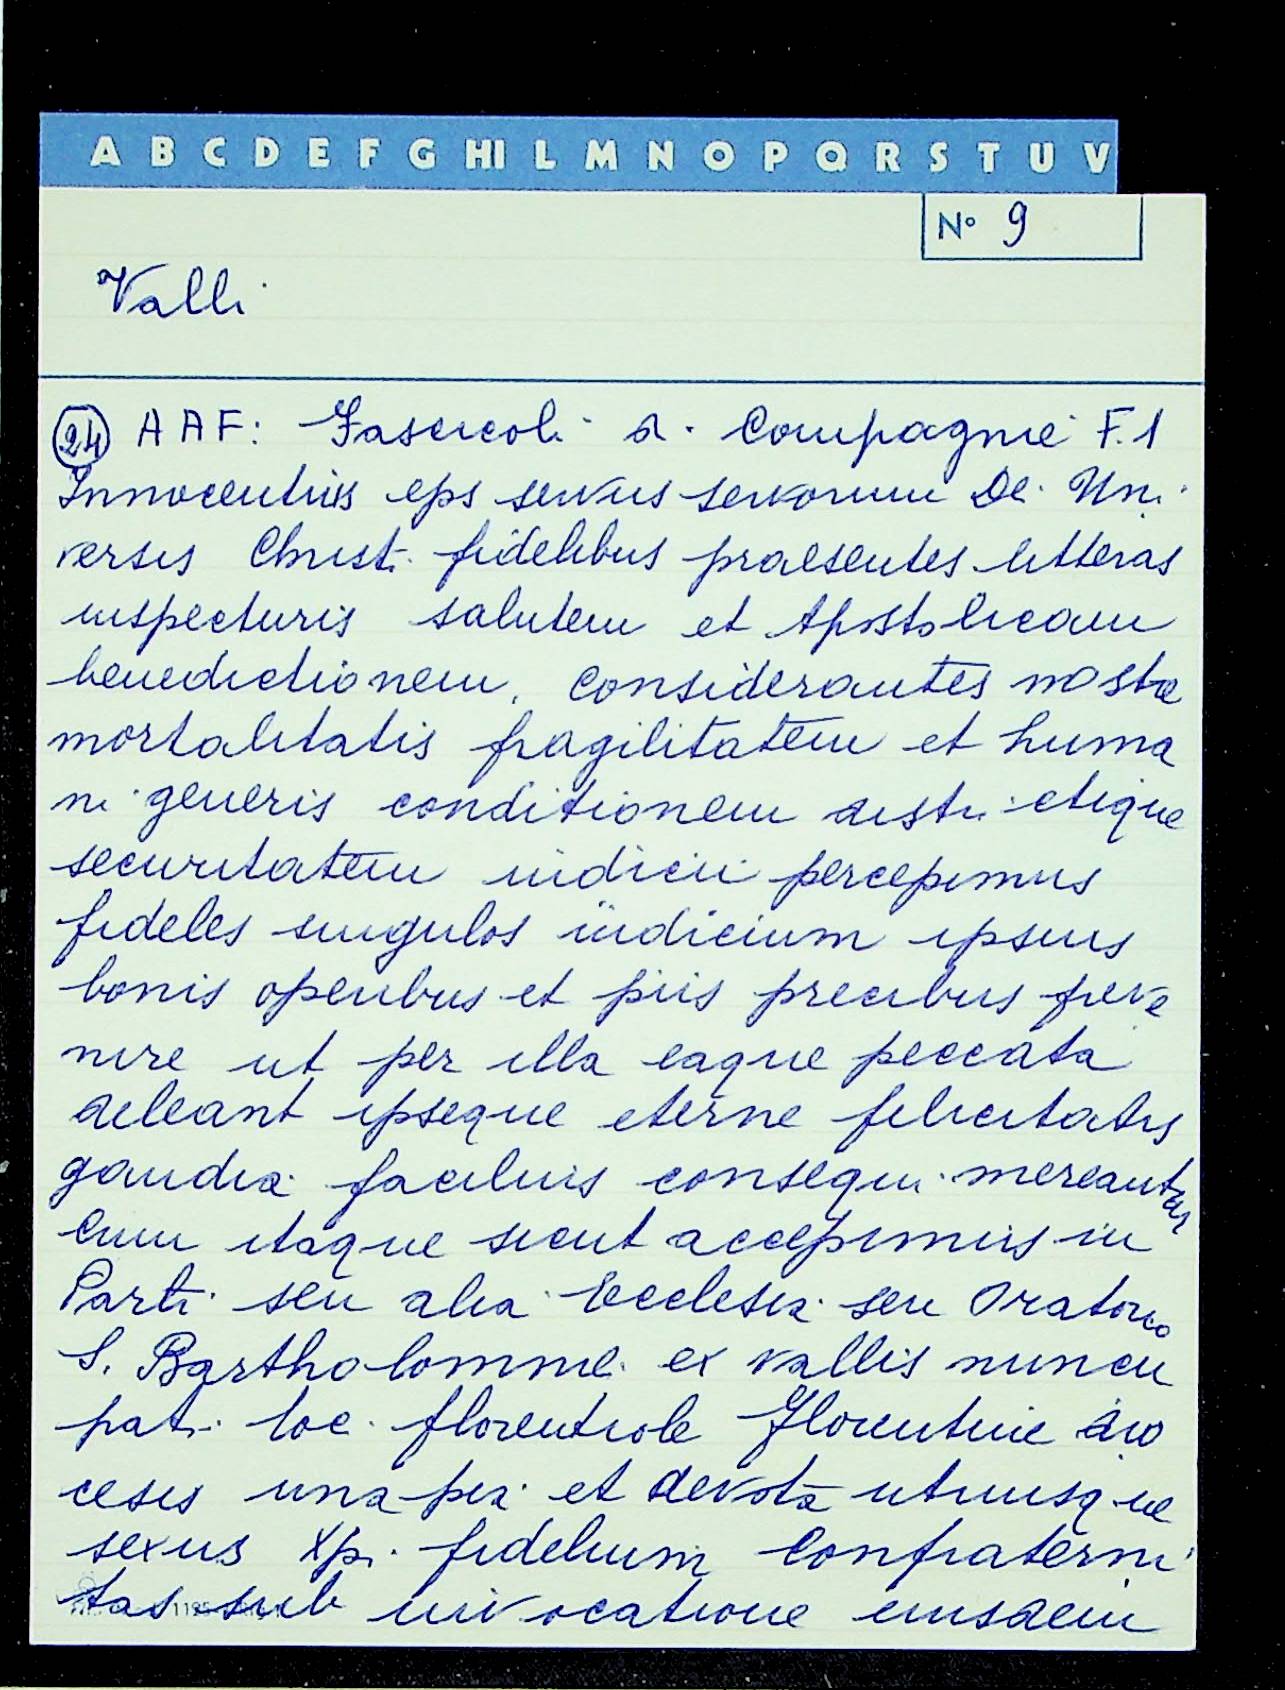 A B C D E F G HI L M N O P Q R S T U V
N° 9
Valli
24 AAF: Fascicoli di Compagnie F.1
Innocentius eps servus servorum Dei Uni
versis Christi fidelibus praesentes litteras
inspecturis salutem et Apostolicam
benedictionem. Considerantes nostrae
mortalitatis fragilitatem et huma
ni generis conditionem districtique
securitatem iudicii percepimus
fideles singulos iudicium ipsius
bonis operibus et piis precibus preve
nire ut per illa eaque peccata
deleant ipseque eterne felicitatis
gaudia facilius consequi mereantur
Cum itaque sicut accepimus in
Parti seu alia Ecclesia seu Oratorio
S. Bartholommei ex vallis nuncu
pati loc. florentiole Florentine dio
cesis una pia et devota utriusque
sexus Xpi. fidelium Confraterni
tas sub invocatione eiusdem